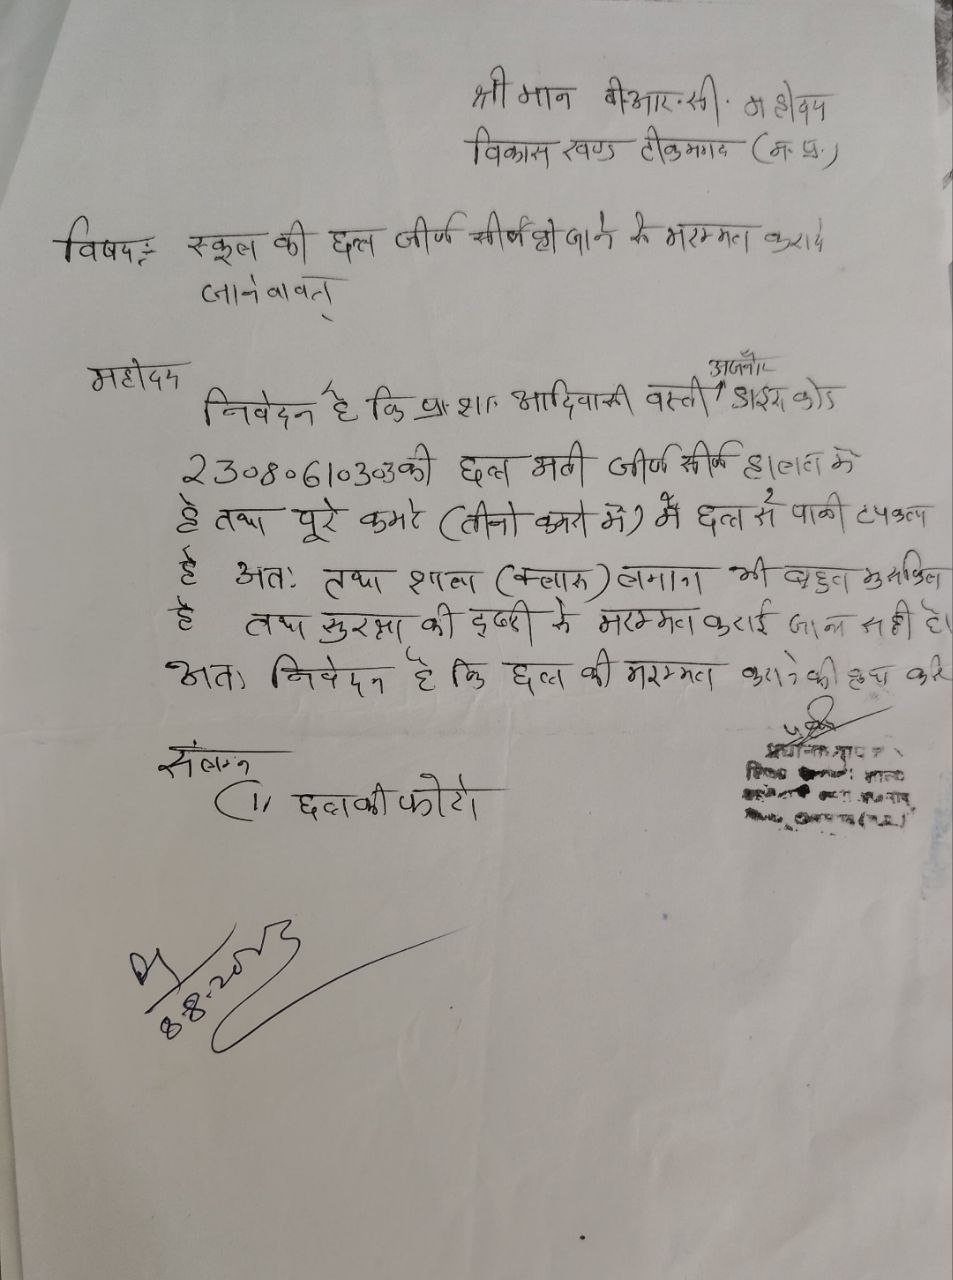 श्रीमान बी.आर.सी. महोदय
विकास खण्ड टीकमगढ (म.प्र.)
विषय:- स्कूल की छत जीर्ण सीर्ण हो जाने के मरम्मत कराये
जाने वावत्
महोदय
अजनौर
निवेदन है कि प्रा. शा. आदिवासी वस्ती डाईस कोड
23080610303 की छत भती जीर्ण सीर्ण हालत मे
है तथा पूरे कमरे (तीनो कमरो मे) में छत से पानी टपकता
है अतः तथा शाला (क्लास) लगाना भी बहुत मुसकिल
है तथा सुरक्षा की के मरम्मत कराई जाना सही है।
अतः निवेदन है कि छत की मरम्मत कराने की कृपा करे
संलग्न
(1) छत की फोटो